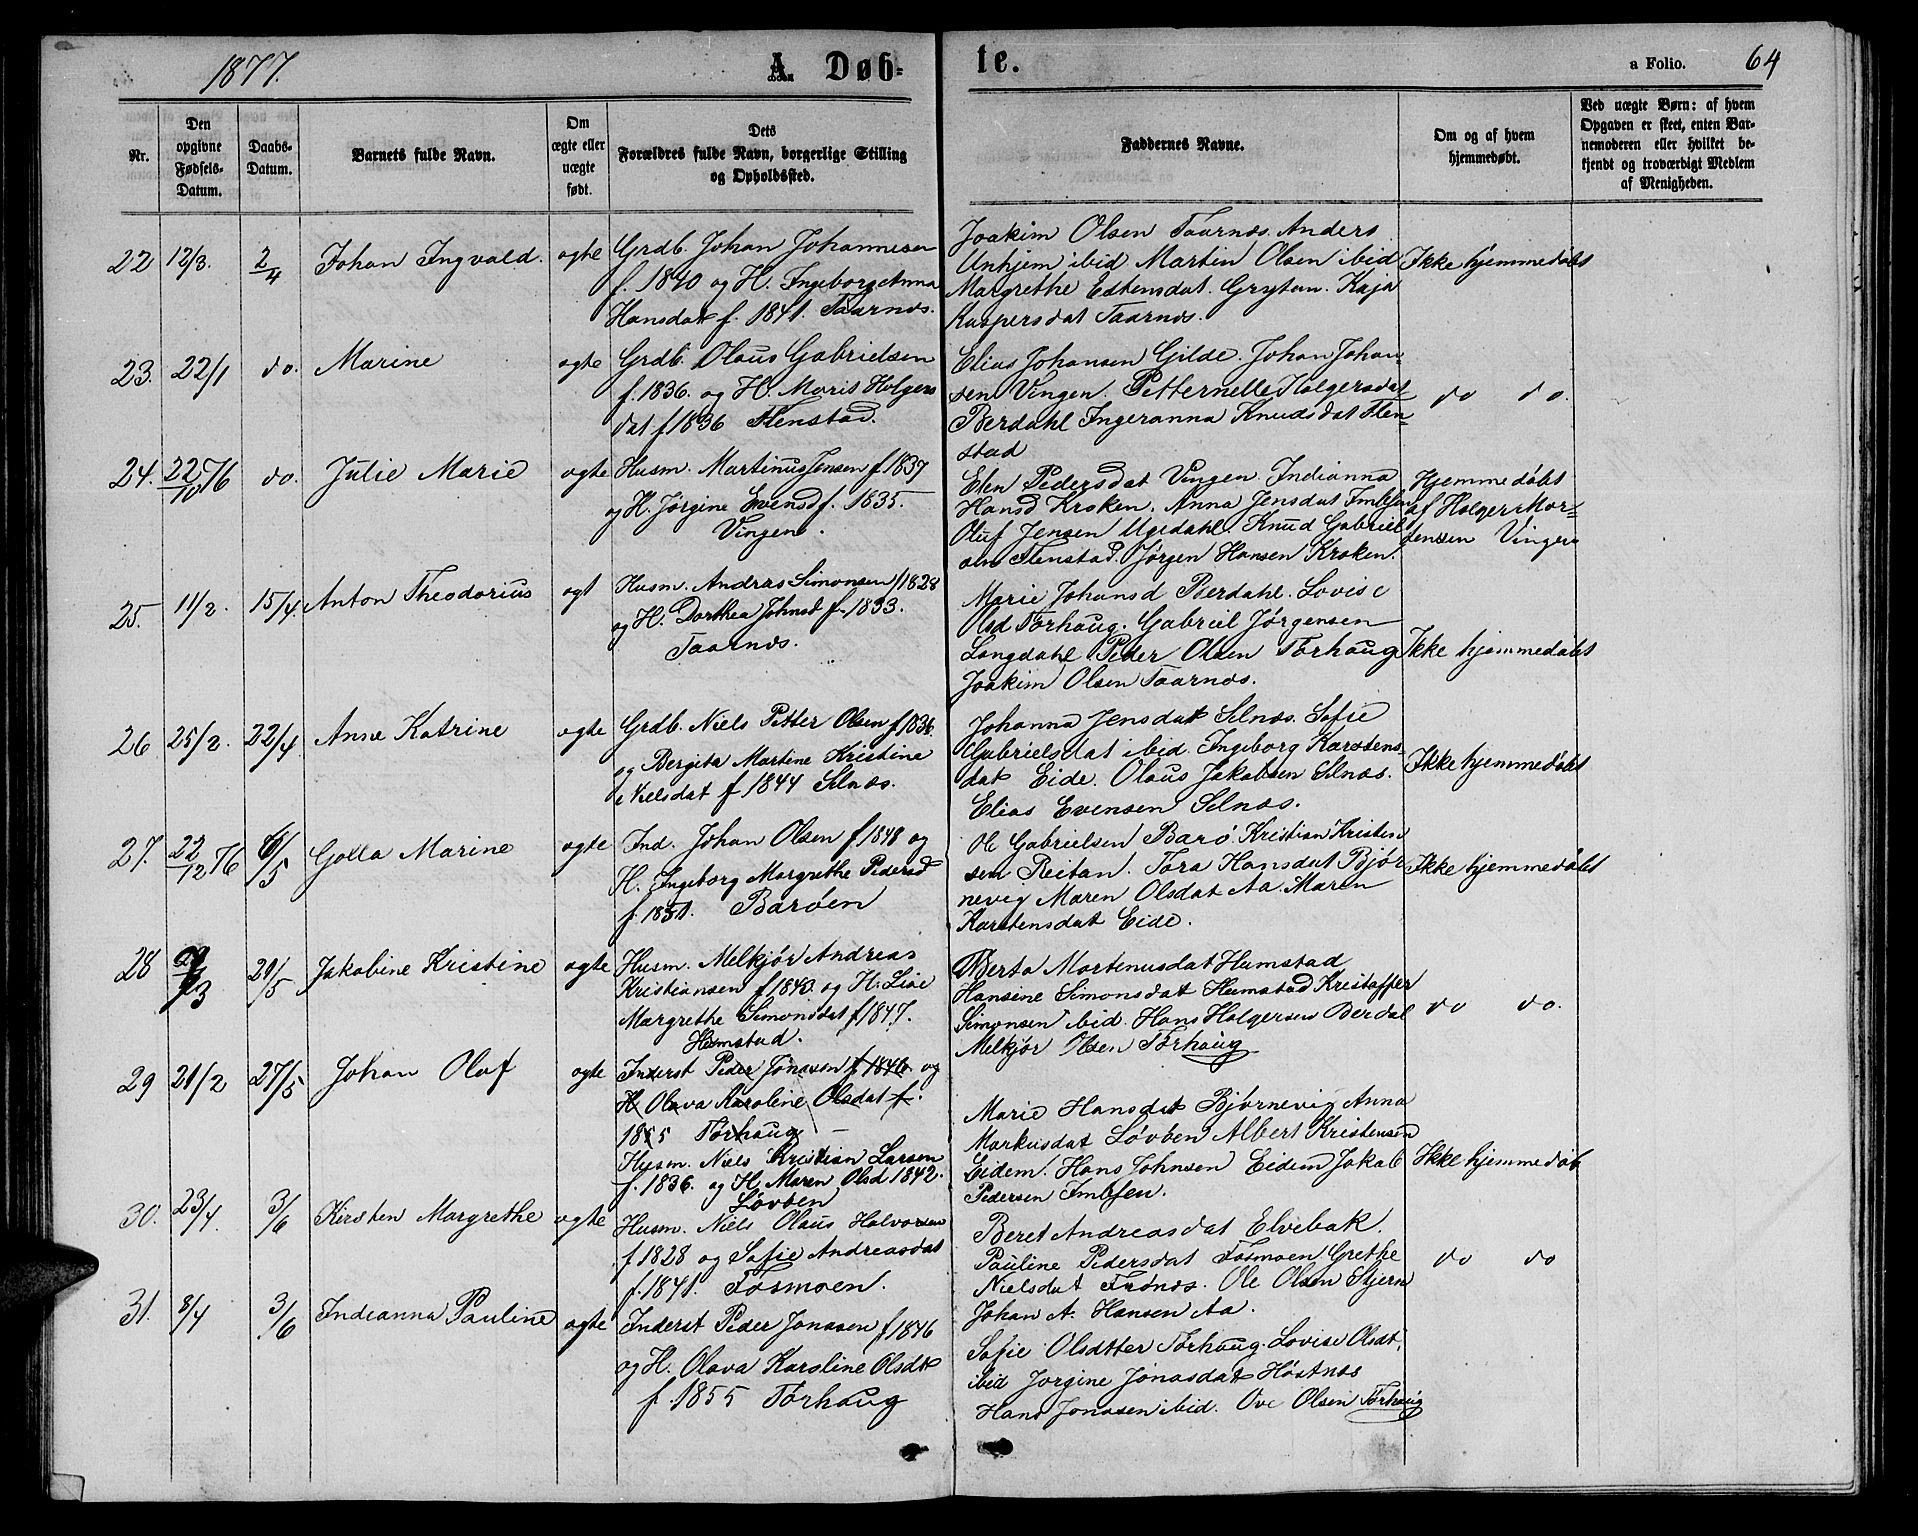 1877.
A. Døb-
te.
a Folio. 64
Nr.
Den opgivne Fødsels-Datum.
Daabs-Datum.
Barnets fulde Navn.
Om ægte eller uægte født.
Dets Forældres fulde Navn, borgerlige Stilling og Opholdssted.
Faddernes Navne.
Om og af hvem hjemmedøbt.
Ved uægte Børn: af hvem Opgaven er skeet, enten Barnemoderen eller hvilket bekjendt og troværdigt Medlem af Menigheden.
22 12/3. 2/4 Johan Ingvald. ægte
Grdb. Johan Johannesen
f. 1840 og H. Ingeborg Anna
Hansdat f. 1841. Taarnes.
Joakim Olsen Taarnes. Anders
Unhjem ibid Martin Olsen ibid
Margrethe Estensdat. Grytan. Kaja
Kaspersdat Taarnes.
Ikke hjemmedøbt
23. 22/1 do. Marine ægte
Grdb. Olaus Gabrielsen
f. 1836. og H. Maris Holgers
dat f 1836 Flenstad.
Elias Johansen Gilde. Johan Johan-
sen Vingen. Petternelle Holgersdat
Berdahl Ingeranna Knudsdat Flen-
stad
do do.
24. 22/10 76 do. Julie Marie ægte
Husm. Martinus Jensen f 1837
og H. Jørgine Evensd f. 1835.
Vingen.
Elen Pedersdat Vingen. Indianna
Hansd Kroken. Anna Jensdat Imbsen
Oluf Jensen Ugedahl. Knud Gabriel
sen Flenstad. Jørgen Hansen Kroken.
Hjemmedøbt
af Holger Mor-
tensen Vingen
25. 11/2. 15/4 Anton Theodorius ægt
Husm. Andreas Simonsen f 1828
og H. Dorthea Johnsd f. 1833.
Taarnes.
Marie Johansd Berdahl. Lovise
Olsd Tørhaug. Gabriel Jørgensen
Langdahl Peder Olsen Tørhaug
Joakim Olsen Taarnes.
Ikke hjemmedøbt
26 25/2. 22/4 Anne Katrine ægte
Grdb. Niels Petter Olsen f 1836
og Bergita Martine Kristine
Nielsdat f 1844 Selnæs.
Johanna Jensdat Selnæs. Sofie
Gabrielsdat ibid. Ingeborg Karstens-
dat Eide. Olaus Jakobsen Selnæs.
Elias Evensen Selnæs.
Ikke hjemmedøbt
27. 22/12 76 6/5 Golla Marine ægte
Ind. Johan Olsen f 1848 og
H. Ingeborg Margrethe Pedersd
f. 1851. Barøen
Ole Gabrielsen Barø Kristian Kristen
sen Reitan. Tora Hansdat Bjør
nevig Maren Olsdat Aa. Maren
Karstensdat Eide.
Ikke hjemmedøbt
28 20/5 Jakobine Kristine ægte
Husm. Melkjør Andreas
Kristiansen f 1843. og H. Lise
Margrethe Simonsdat f 1847.
Hemstad.
Berta Mortenusdat Hemstad
Hansine Simonsdat Hemstad Kristoffer
Simonsen ibid. Hans Holgersen Berdal
Melkjør Olsen Tørhaug
do do.
29 21/2 27/5 Johan Olaf ægte
Inderst Peder Jonasen f 1846. og
H. Olava Karoline Olsdat f.
1855 Tørhaug
Husm. Niels Kristian Larsen
f. 1836. og H. Maren Olsd 1842.
Løvben
Marie Hansdat Bjørnevig Anna
Markusdat Løvben Albert Kristensen
Eidem. Hans Johnsen Eidem Jakob
Pedersen Imbsen.
Ikke hjemmedøb
30. 23/4 3/6 Kirsten Margrethe ægte
Husm. Niels Olaus Halvorsen
f 1828 og Sofie Andreasdat
f. 1841. Fosmoen.
Beret Andreasdat Elvebak.
Pauline Pedersdat Fosmoen Grethe
Nielsdat Frønes. Ole Olsen Stjern
Johan A. Hansen Aa.
do do
31. 8/4 3/6 Indianna Pauline ægte
Inderst Peder Jonasen f 1846
og H. Olava Karoline Olsdt
f. 1855 Tørhaug
Sofie Olsdtter Tørhaug. Lovise Olsdt.
ibid Jorgine Jonasdat Høstnes
Hans Jonasen ibid. Ove Olsen Tørhaug